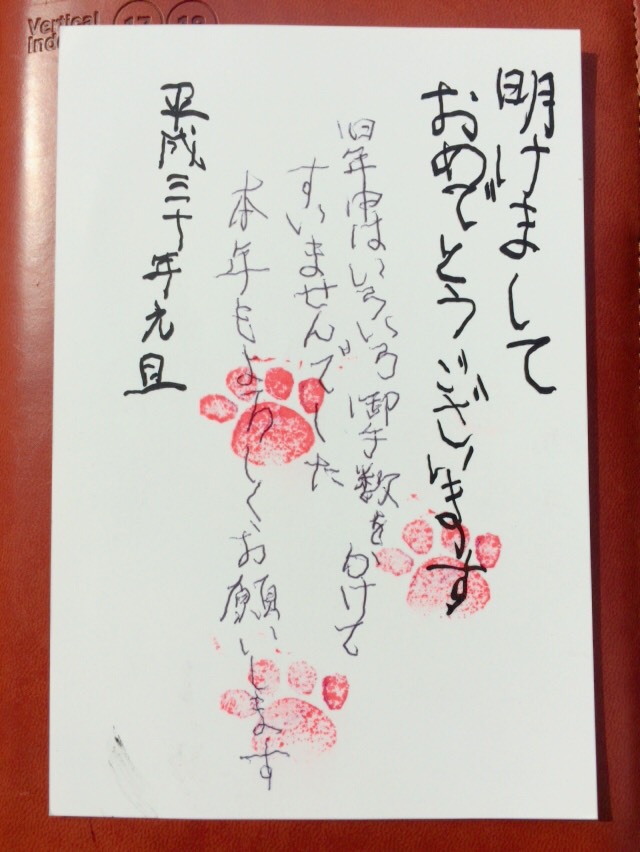 明けまして
おめでとうございます
旧年中はいろいろ御手数をかけて
すいませんでした
本年もよろしくお願いします
平成三十年元旦
Vertical
17 18